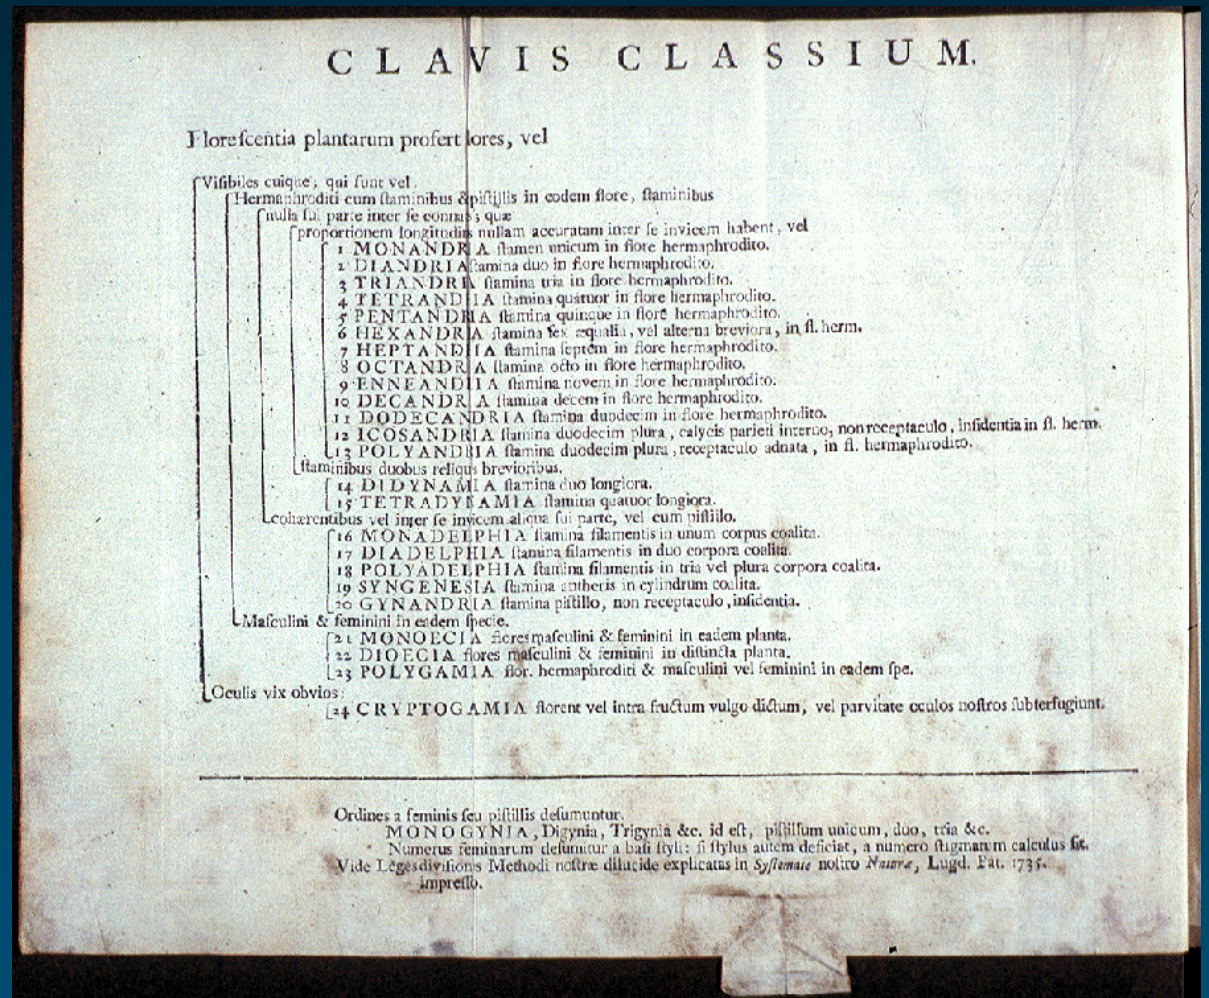 CLAVIS CLASSIUM.
Florescentia plantarum profert lores, vel
Visibiles cuique; qui sunt vel.
Hermaphroditi cum staminibus & pistillis in eodem flore, staminibus
nulla sui parte inter se connatis; quæ
proportionem longitudinis nullam accuratam inter se invicem habent, vel
1 MONANDRIA stamen unicum in flore hermaphrodito.
2 DIANDRIA stamina duo in flore hermaphrodito.
3 TRIANDRIA stamina tria in flore hermaphrodito.
4 TETRANDRIA stamina quatuor in flore hermaphrodito.
5 PENTANDRIA stamina quinque in flore hermaphrodito.
6 HEXANDRIA stamina sex æqualia, vel alterna breviora, in fl. herm.
7 HEPTANDRIA stamina septem in flore hermaphrodito.
8 OCTANDRIA stamina octo in flore hermaphrodito.
9 ENNEANDRIA stamina novem in flore hermaphrodito.
10 DECANDRIA stamina decem in flore hermaphrodito.
11 DODECANDRIA stamina duodecim in flore hermaphrodito.
12 ICOSANDRIA stamina duodecim plura, calycis parieti interno, non receptaculo, insidentia in fl. herm.
13 POLYANDRIA stamina duodecim plura, receptaculo adnata, in fl. hermaphrodito.
staminibus duobus reliquis brevioribus.
14 DIDYNAMIA stamina duo longiora.
15 TETRADYNAMIA stamina quatuor longiora.
cohærentibus vel inter se invicem aliqua sui parte, vel cum pistillo.
16 MONADELPHIA stamina filamentis in unum corpus coalita.
17 DIADELPHIA stamina filamentis in duo corpora coalita.
18 POLYADELPHIA stamina filamentis in tria vel plura corpora coalita.
19 SYNGENESIA stamina antheris in cylindrum coalita.
20 GYNANDRIA stamina pistillo, non receptaculo, insidentia.
Masculini & feminini in eadem specie.
21 MONOECIA flores masculini & feminini in eadem planta.
22 DIOECIA flores masculini & feminini in distincta planta.
23 POLYGAMIA flor. hermaphroditi & masculini vel feminini in eadem spe.
Oculis vix obvios:
24 CRYPTOGAMIA florent vel intra fructum vulgo dictum, vel parvitate oculos nostros subterfugiunt.
Ordines a feminis seu pistillis desumuntur.
MONOGYNIA, Digynia, Trigynia &c. id est, pistillum unicum, duo, tria &c.
Numerus feminarum desumitur a basi styli: si stylus autem deficiat, a numero stigmatum calculus fit.
Vide Leges divisionis Methodi nostræ dilucide explicatas in Systemate nostro Naturæ, Lugd. Bat. 1735.
impresso.